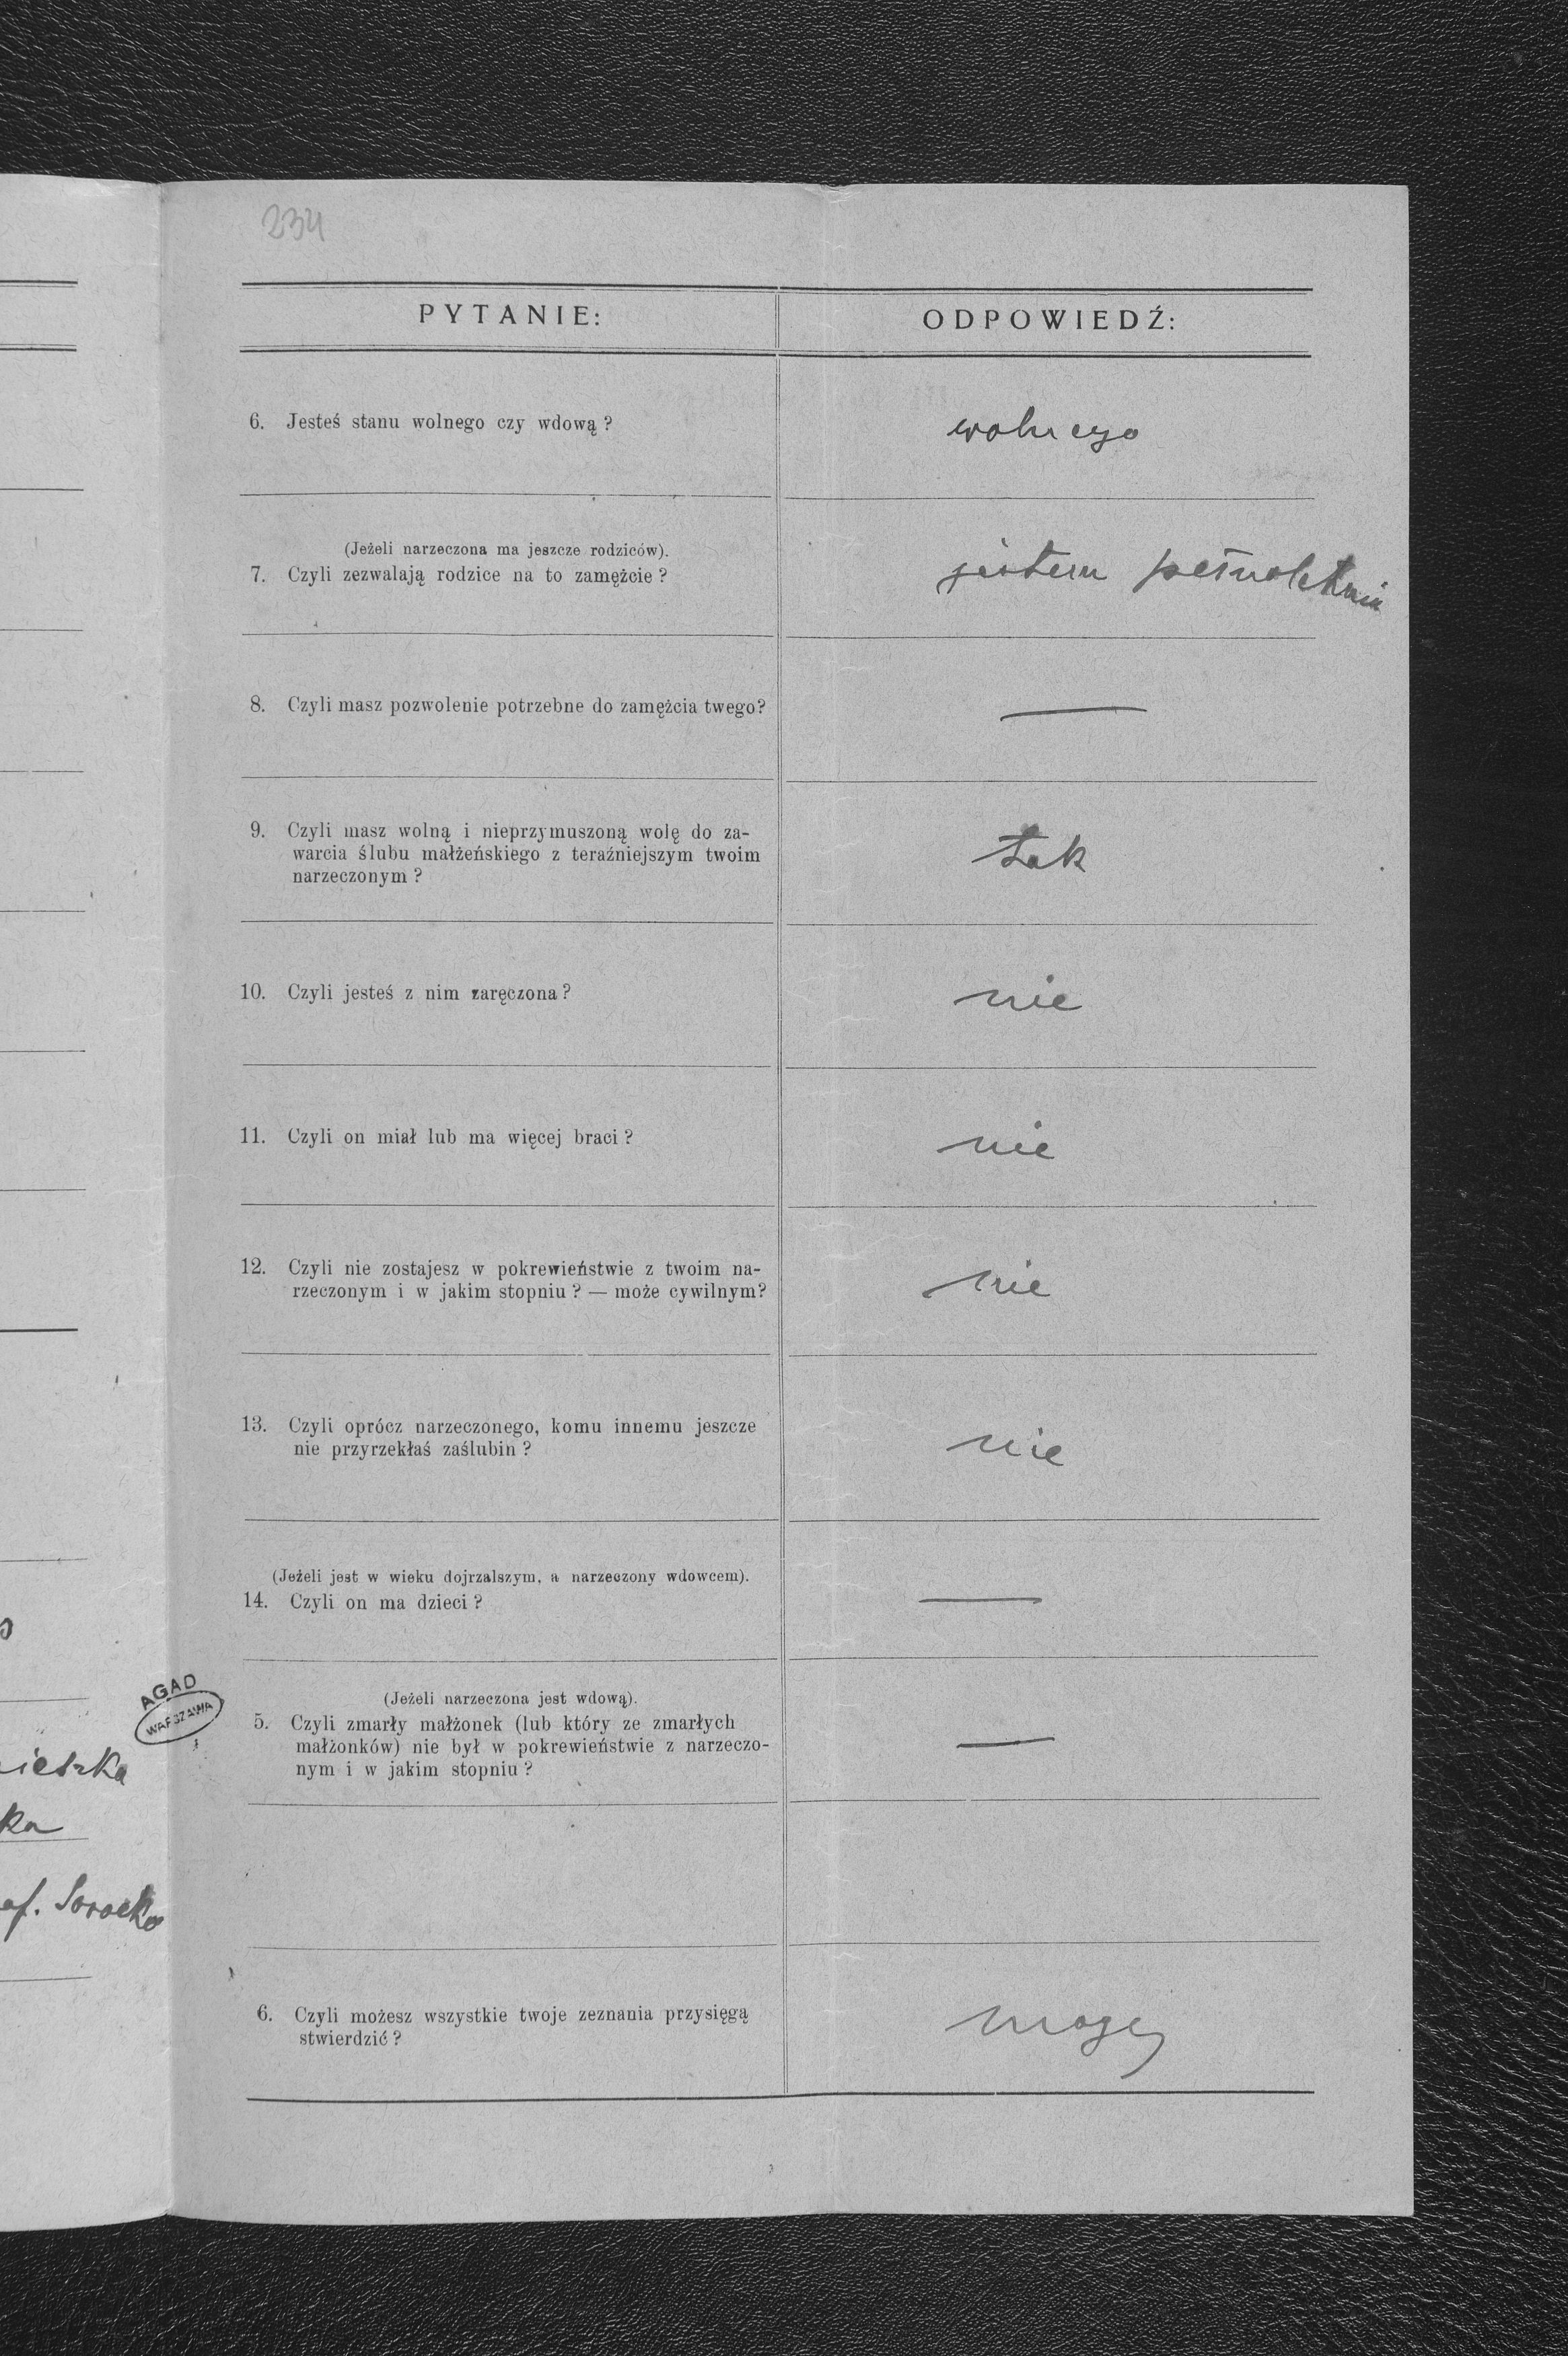 234
PYTANIE:
ODPOWIEDŹ:
6. Jesteś stanu wolnego czy wdową?
wolnego
(Jeżeli narzeczona ma jeszcze rodziców).
7. Czyli zezwalają rodzice na to zamężcie?
jestem pełnoletnia
8. Czyli masz pozwolenie potrzebne do zamężcia twego?
—
9. Czyli masz wolną i nieprzymuszoną wolę do za-
warcia ślubu małżeńskiego z teraźniejszym twoim
narzeczonym?
tak
10. Czyli jesteś z nim zaręczona?
nie
11. Czyli on miał lub ma więcej braci?
nie
12. Czyli nie zostajesz w pokrewieństwie z twoim na-
rzeczonym i w jakim stopniu? — może cywilnym?
nie
13. Czyli oprócz narzeczonego, komu innemu jeszcze
nie przyrzekłaś zaślubin?
nie
(Jeżeli jest w wieku dojrzalszym, a narzeczony wdowcem).
14. Czyli on ma dzieci?
—
(Jeżeli narzeczona jest wdową).
5. Czyli zmarły małżonek (lub który ze zmarłych
małżonków) nie był w pokrewieństwie z narzeczo-
nym i w jakim stopniu?
—
6. Czyli możesz wszystkie twoje zeznania przysięgą
stwierdzić?
mogę
AGAD
WARSZAWA